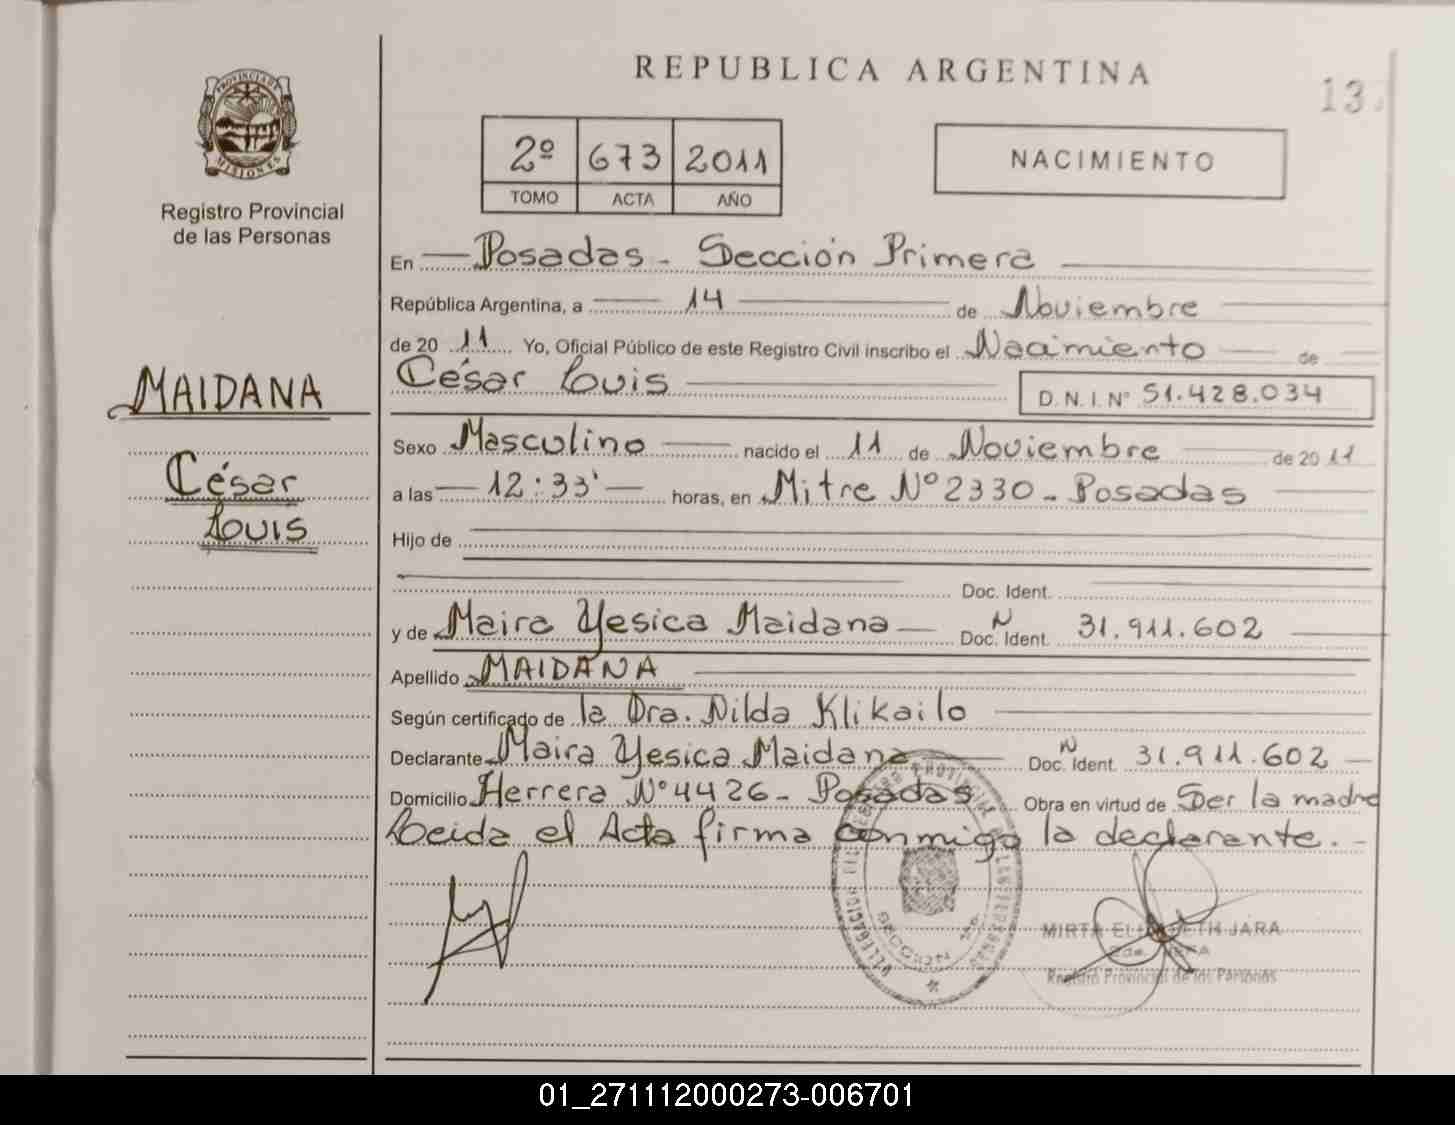 REPUBLICA ARGENTINA
13
PROVINCIA DE
MISIONES
Registro Provincial
de las Personas
2º 673 2011
TOMO ACTA AÑO
NACIMIENTO
En Posadas - Sección Primera
República Argentina, a 14 de Noviembre
de 20 11 Yo, Oficial Público de este Registro Civil inscribo el Nacimiento de
César Louis D.N.I. Nº 51.428.034
MAIDANA
César
Louis
Sexo Masculino nacido el 11 de Noviembre de 20 11
a las 12:33' horas, en Mitre Nº 2330 - Posadas
Hijo de
Doc. Ident.
y de Maira Yesica Maidana Doc. Ident. N 31.911.602
Apellido MAIDANA
Según certificado de la Dra. Nilda Klikailo
Declarante Maira Yesica Maidana Doc. Ident. N 31.911.602
Domicilio Herrera Nº 4426 - Posadas Obra en virtud de Ser la madre
Leida el Acta firma conmigo la declarante. -
SECCION 1ra
MIRTA ELIZABETH JARA
Registro Provincial de las Personas
01_271112000273-006701